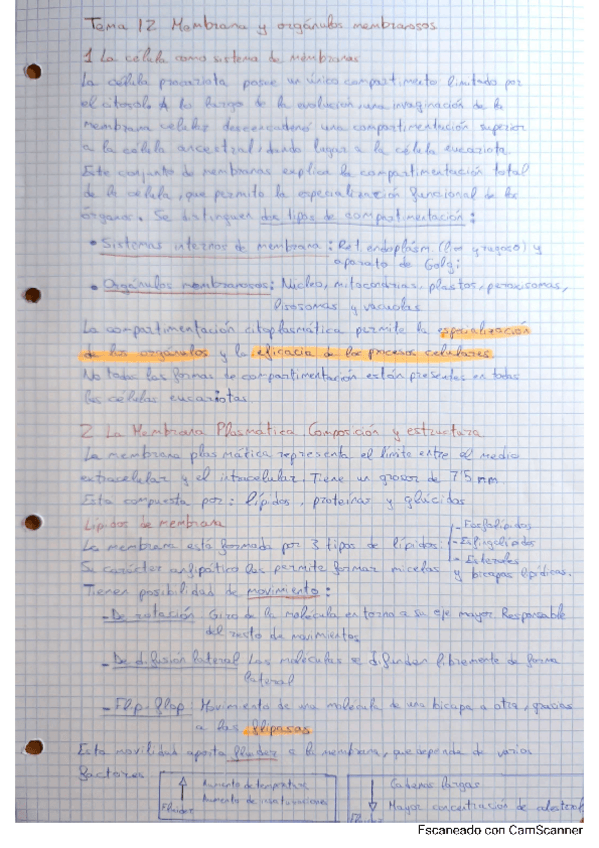 Tema 12 Membrana y orgánulos membranosos
1 La célula como sistema de membranas
La célula procariota posee un único compartimento limitado por
el citosol. A lo largo de la evolución, una invaginación de la
membrana celular desencadenó una compartimentación superior
a la célula ancestral, dando lugar a la célula eucariota
Este conjunto de membranas explica la compartimentación total
de la célula, que permite la especialización funcional de los
órganos. Se distinguen dos tipos de compartimentación:
• Sistemas internos de membrana: Ret. endoplásm. (liso y rugoso) y
aparato de Golgi
• Orgánulos membranosos: Núcleo, mitocondrias, plastos, peroxisomas,
lisosomas y vacuolas
La compartimentación citoplasmática permite la especialización
de los orgánulos y la eficacia de los procesos celulares
No todas las formas de compartimentación están presentes en todas
las células eucariotas
2 La Membrana Plasmática. Composición y estructura
La membrana plasmática representa el límite entre el medio
extracelular y el intracelular. Tiene un grosor de 75 nm.
Esta compuesta por: lípidos, proteínas y glúcidos
Lípidos de membrana
La membrana está formada por 3 tipos de lípidos:
- Fosfolípidos
- Esfingolípidos
- Esteroles
Su carácter anfipático les permite formar micelas y bicapas lipídicas.
Tienen posibilidad de movimiento:
- De rotación Giro de la molécula en torno a su eje mayor Responsable
del resto de movimientos
- De difusión lateral Las moléculas se difunden libremente de forma
lateral
- Flip-flop Movimiento de una molécula de una bicapa a otra, gracias
a las flipasas
Esta movilidad aporta fluidez a la membrana, que depende de varios
factores
↑ Aumento de temperatura
Aumento de insaturaciones
Fluidez
↓ Cadenas largas
Mayor concentración de colesterol
Escaneado con CamScanner